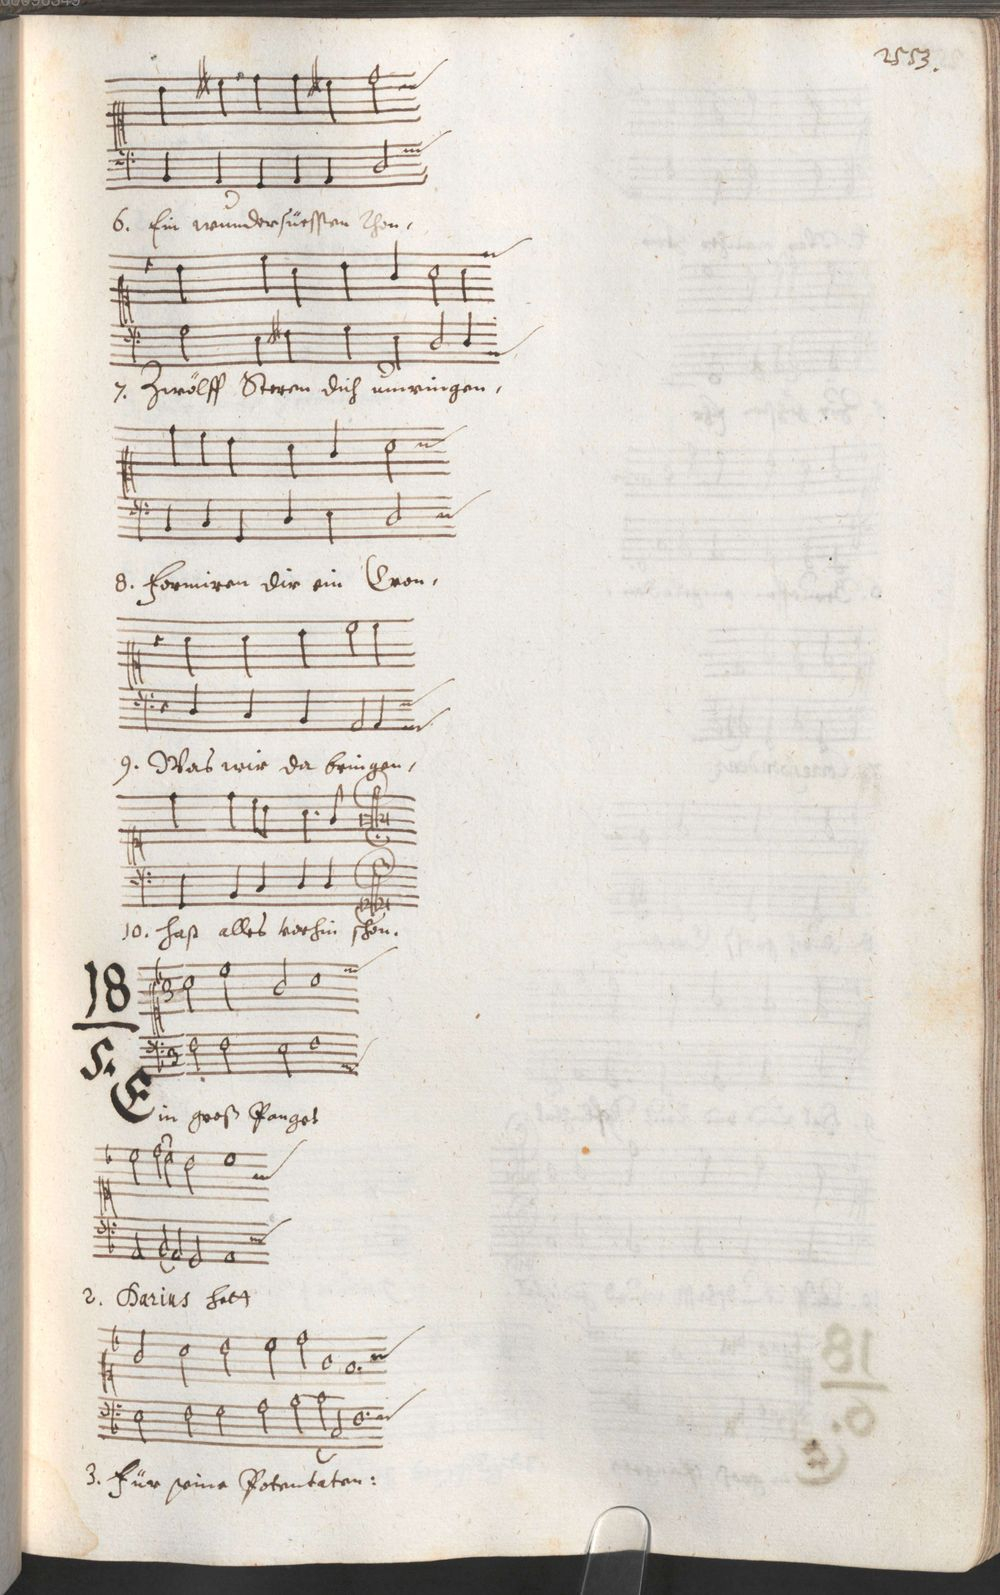 2553.
6. Ein wundersüessten Thon,
7. Zwölff Steren dich umringen,
8. Formiren dir ein Cron,
9. Was wir da bringen,
10. hast alles vorhin schon.
18
5.
Ein groß Panget
2. Darius hett
3. Für seine Potentaten: